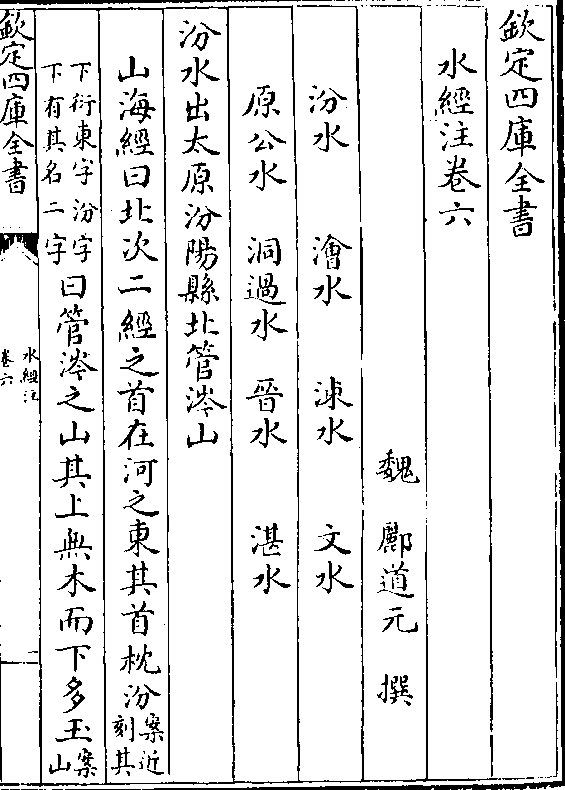 欽定四庫全書
水經注卷六
魏 酈道元 撰
汾水 澮水 涑水 文水
原公水 洞過水 晉水 湛水
汾水出太原汾陽縣北管涔山
山海經曰北次二經之首在河之東其首枕汾案近刻其
下衍東字汾字下有其名二字曰管涔之山其上無木而下多玉案山
欽定四庫全書
水經注
卷六